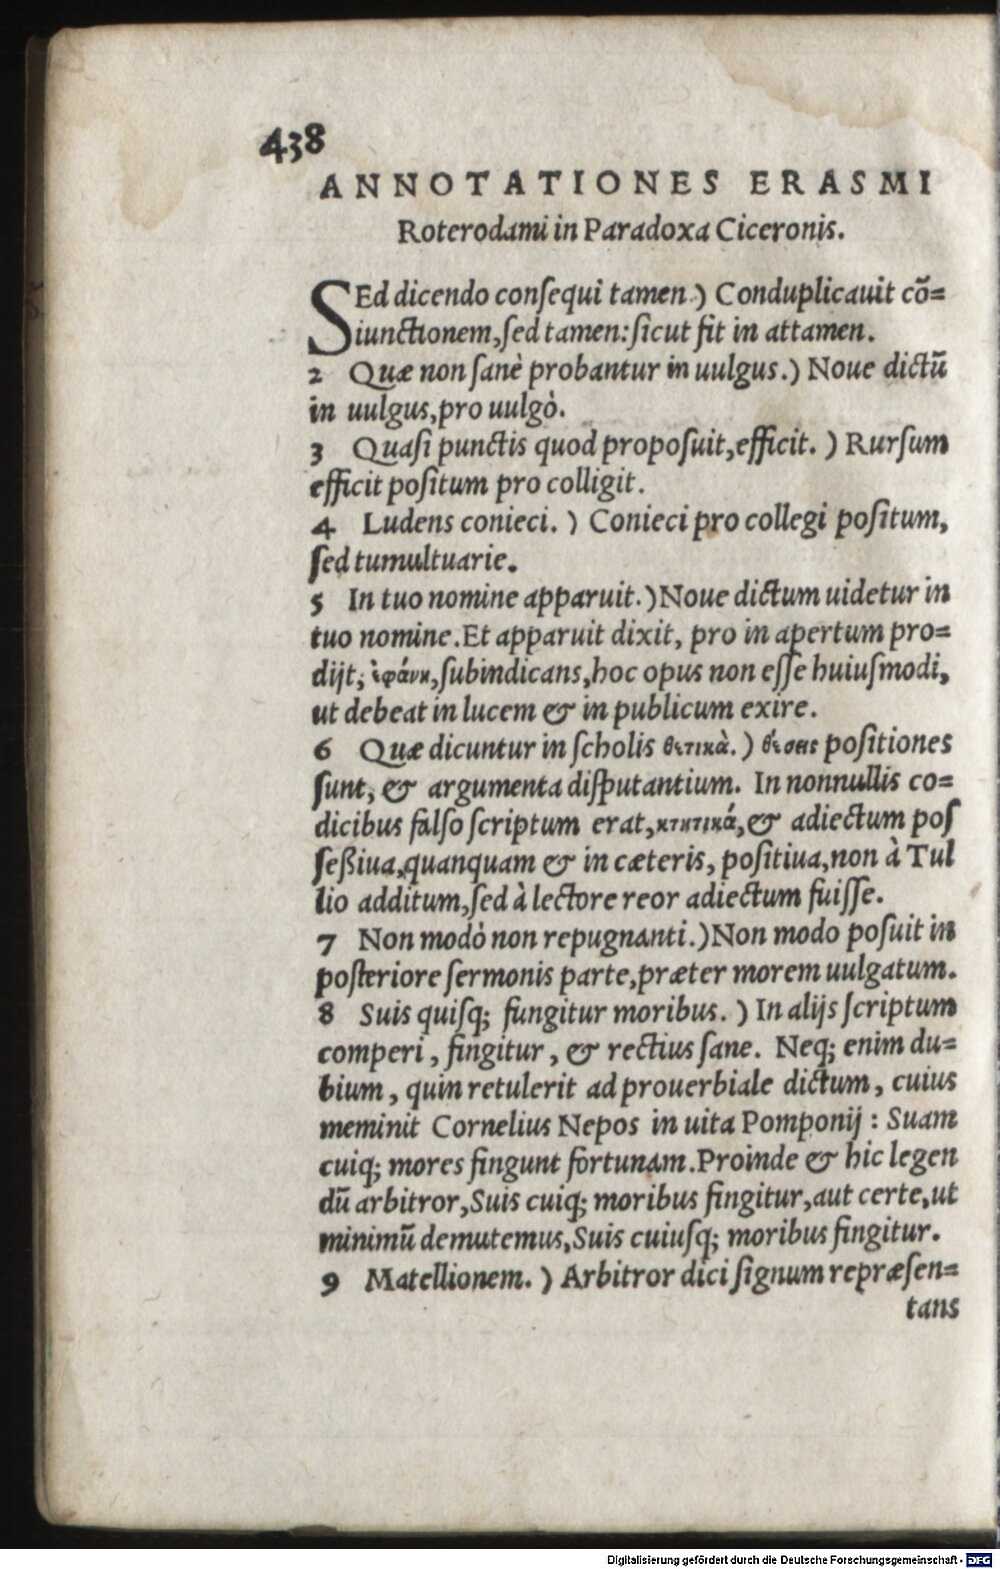 438
ANNOTATIONES ERASMI
Roterodami in Paradoxa Ciceronis.
SEd dicendo conſequi tamen.) Conduplicauit cō=
iunctionem, ſed tamen: ſicut fit in attamen.
2 Quæ non ſanè probantur in uulgus.) Noue dictū
in uulgus, pro uulgò.
3 Quaſi punctis quod propoſuit, efficit.) Rurſum
efficit poſitum pro colligit.
4 Ludens conieci.) Conieci pro collegi poſitum,
ſed tumultuarie.
5 In tuo nomine apparuit.) Noue dictum uidetur in
tuo nomine. Et apparuit dixit, pro in apertum pro=
dijt, ἐφάνη, ſubindicans, hoc opus non eſſe huiuſmodi,
ut debeat in lucem & in publicum exire.
6 Quæ dicuntur in ſcholis θετικὰ.) θέσεις poſitiones
ſunt, & argumenta diſputantium. In nonnullis co=
dicibus falſo ſcriptum erat, κτητικά, & adiectum poſ
ſeßiua, quanquam & in cæteris, poſitiua, non à Tul
lio additum, ſed à lectore reor adiectum fuiſſe.
7 Non modò non repugnanti.) Non modo poſuit in
poſteriore ſermonis parte, præter morem uulgatum.
8 Suis quiſq; fungitur moribus.) In alijs ſcriptum
comperi, fingitur, & rectius ſane. Neq; enim du=
bium, quin retulerit ad prouerbiale dictum, cuius
meminit Cornelius Nepos in uita Pomponij: Suam
cuiq; mores fingunt fortunam. Proinde & hic legen
dū arbitror, Suis cuiq; moribus fingitur, aut certe, ut
minimū demutemus, Suis cuiuſq; moribus fingitur.
9 Matellionem.) Arbitror dici ſignum repræſen=
tans
Digitalisierung gefördert durch die Deutsche Forschungsgemeinschaft - DFG